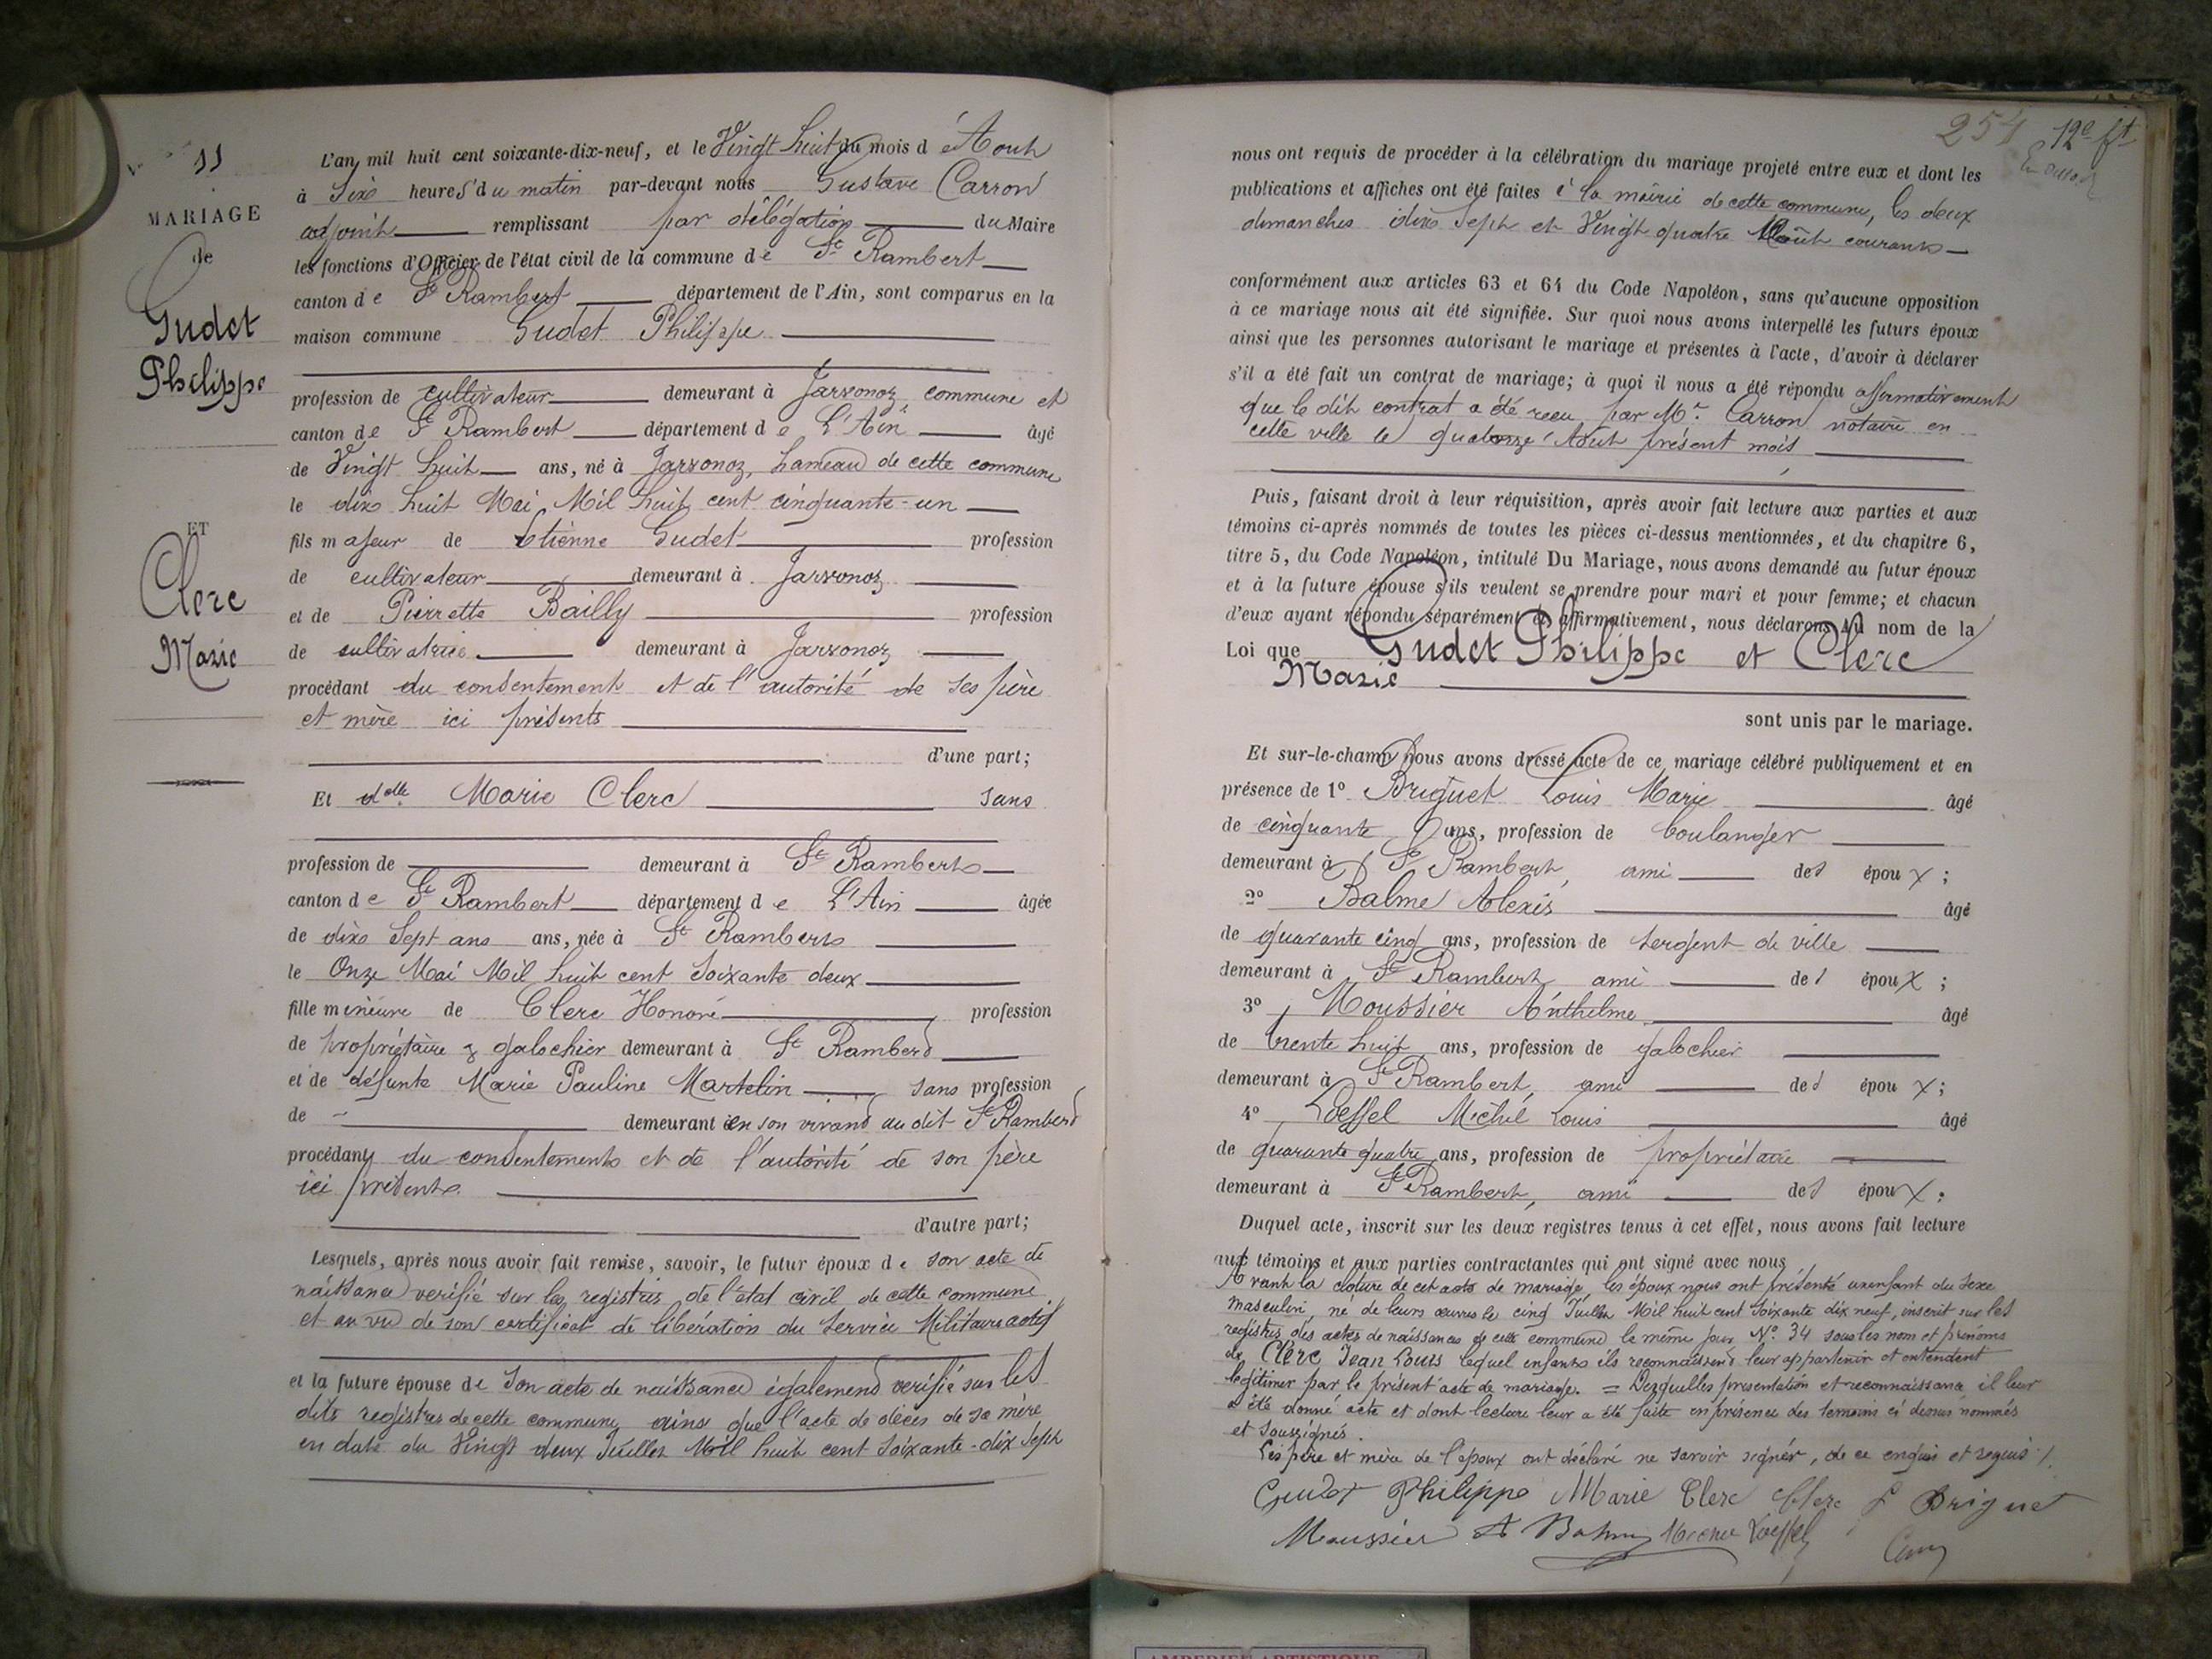 11
MARIAGE
de
Gudet
Philippe
ET
Clerc
Marie
L'an mil huit cent soixante-dix-neuf, et le Vingt huit du mois d'Aout
à Six heures du matin par-devant nous Gustave Carron
adjoint remplissant par délégation du Maire
les fonctions d'Officier de l'état civil de la commune de St Rambert
canton de St Rambert département de l'Ain, sont comparus en la
maison commune Gudet Philippe
profession de cultivateur demeurant à Jarvonoz, commune et
canton de St Rambert département de L'Ain âgé
de Vingt huit ans, né à Jarvonoz, hameau de cette commune
le dix huit Mai Mil huit cent cinquante-un
fils majeur de Etienne Gudet profession
de cultivateur demeurant à Jarvonoz
et de Pierrette Bailly profession
de cultivatrice demeurant à Jarvonoz
procédant du consentement et de l'autorité de ses père
et mère ici présents
d'une part;
Et dlle Marie Clerc sans
profession de demeurant à St Rambert
canton de St Rambert département de L'Ain âgée
de dix Sept ans ans, née à St Rambert
le Onze Mai Mil huit cent Soixante deux
fille mineure de Clerc Honoré profession
de propriétaire & galochier demeurant à St Rambert
et de défunte Marie Pauline Martelin sans profession
de demeurant en son vivant au dit St Rambert
procédant du consentement et de l'autorité de son père
ici présent
d'autre part;
Lesquels, après nous avoir fait remise, savoir, le futur époux de son acte de
naissance vérifié sur les registres de l'état civil de cette commune
et au vu de son certificat de libération du Service Militaire actif
et la future épouse de Son acte de naissance également vérifié sur les
dits registres de cette commune, ainsi que l'acte de décès de sa mère
en date du Vingt deux Juillet Mil huit cent Soixante-dix Sept
254 12e ft
nous ont requis de procéder à la célébration du mariage projeté entre eux et dont les
publications et affiches ont été faites à la mairie de cette commune, les deux
dimanches dix Sept et Vingt quatre Août courant
conformément aux articles 63 et 64 du Code Napoléon, sans qu'aucune opposition
à ce mariage nous ait été signifiée. Sur quoi nous avons interpellé les futurs époux
ainsi que les personnes autorisant le mariage et présentes à l'acte, d'avoir à déclarer
s'il a été fait un contrat de mariage; à quoi il nous a été répondu affirmativement
que le dit contrat a été recu par Mr Carron notaire en
cette ville le quatorze Août présent mois
Puis, faisant droit à leur réquisition, après avoir fait lecture aux parties et aux
témoins ci-après nommés de toutes les pièces ci-dessus mentionnées, et du chapitre 6,
titre 5, du Code Napoléon, intitulé Du Mariage, nous avons demandé au futur époux
et à la future épouse s'ils veulent se prendre pour mari et pour femme; et chacun
d'eux ayant répondu séparément et affirmativement, nous déclarons au nom de la
Loi que Gudet Philippe et Clerc
Marie
sont unis par le mariage.
Et sur-le-champ nous avons dressé acte de ce mariage célébré publiquement et en
présence de 1º Briguet Louis Marie âgé
de cinquante ans, profession de boulanger
demeurant à St Rambert, ami des époux;
2º Balme Alexis âgé
de quarante cinq ans, profession de Sergent de ville
demeurant à St Rambert ami des époux;
3º Moussier Anthelme âgé
de trente huit ans, profession de galochier
demeurant à St Rambert, ami des époux;
4º Loeffel Michel Louis âgé
de quarante quatre ans, profession de propriétaire
demeurant à St Rambert, ami des époux;
Duquel acte, inscrit sur les deux registres tenus à cet effet, nous avons fait lecture
aux témoins et aux parties contractantes qui ont signé avec nous
Avant la cloture de cet acte de mariage, les époux nous ont présenté un enfant du Sexe
masculin, né de leurs œuvres le cinq Juillet Mil huit cent Soixante dix neuf, inscrit sur les
registres des actes de naissances de cette commune le même jour Nº 34 sous les nom et prénoms
de Clerc Jean Louis lequel enfant ils reconnaissent leur appartenir et entendent
légitimer par le présent acte de mariage. = Desquelles présentation et reconnaissance il leur
a été donné acte et dont lecture leur a été faite en présence des temoins ci dessus nommés
et soussignés.
Les père et mère de l'époux ont déclaré ne savoir signer, de ce enquis et requis
Gudet Philippe Marie Clerc Clerc L Briguet
Moussier A Balme Michel Loeffel